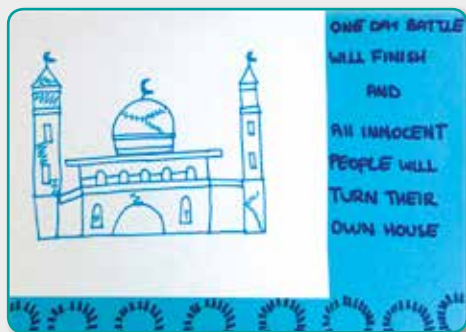 ONE DAY BATTLE
WILL FINISH
AND
All INNOCENT
PEOPLE WILL
TURN THEIR
OWN HOUSE